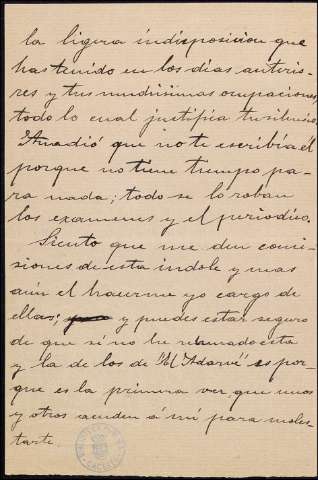 la ligera indisposicion que
has tenido en los dias anterio-
res y tus muchisimas ocupaciones,
todo lo cual justifica tu silencio.
Añadió que no te escribía él
porque no tiene tiempo pa-
ra nada; todo se lo roban
los examenes y el periodico.
Siento que me den comi-
siones de esta indole y mas
aún el hacerme yo cargo de
ellas; y puedes estar seguro
de que si no he rehusado esta
y la de los de "El Adarve" es por-
que es la primera vez que unos
y otros acuden á mi para moles-
tarte.